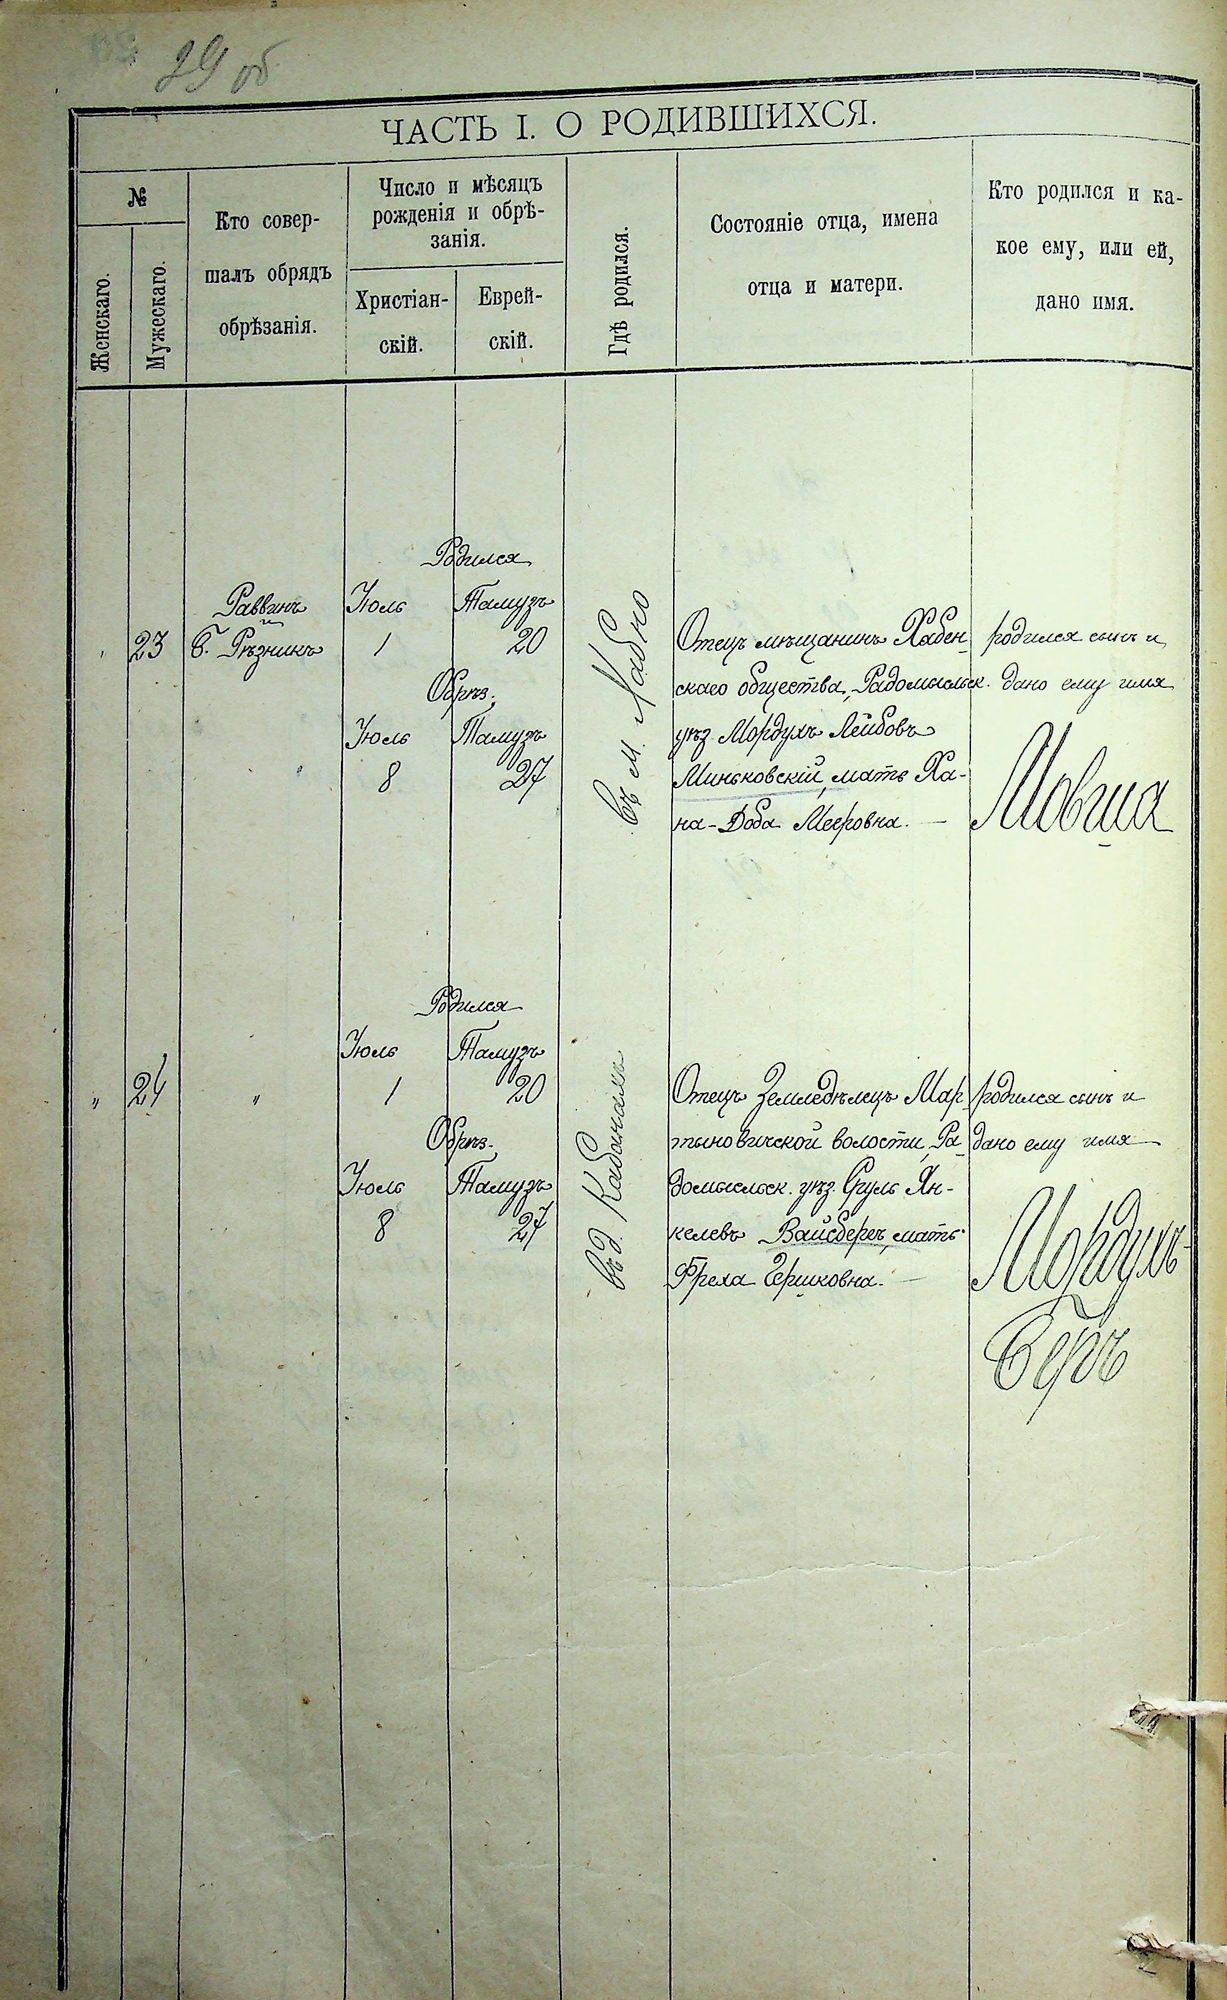 29 об
ЧАСТЬ I. О РОДИВШИХСЯ.
№
Женскаго.
Мужескаго.
Кто совер-
шалъ обрядъ
обрѣзанія.
Число и мѣсяцъ
рожденія и обрѣ-
занія.
Христіан-
скій.
Еврей-
скій.
Гдѣ родился.
Состояніе отца, имена
отца и матери.
Кто родился и ка-
кое ему, или ей,
дано имя.
„ 23
Раввинъ
и
Б. Рѣзникъ
Родился
Іюль Тамузъ
1 20
Обрѣз.
Іюль Тамузъ
8 27
въ м. Хабно
Отецъ мѣщанинъ Хабен-
скаго общества, Радомысльск.
уѣз Мордухъ Лейбовъ
Миньковскій, мать Ха-
на-Доба Мееровна. —
родился сынъ и
дано ему имя
Мовша
„ 24 „
Родился
Іюль Тамузъ
1 20
Обрѣз.
Іюль Тамузъ
8 27
въ д. Кабанахъ
Отецъ Земледѣлецъ Мар
тыновичской волости, Ра-
домысльск. уѣз. Сруль Ян-
келевъ Вайсбергъ, мать
Фрела Гершковна. —
родился сынъ и
дано ему имя
Мордухъ-
Беръ